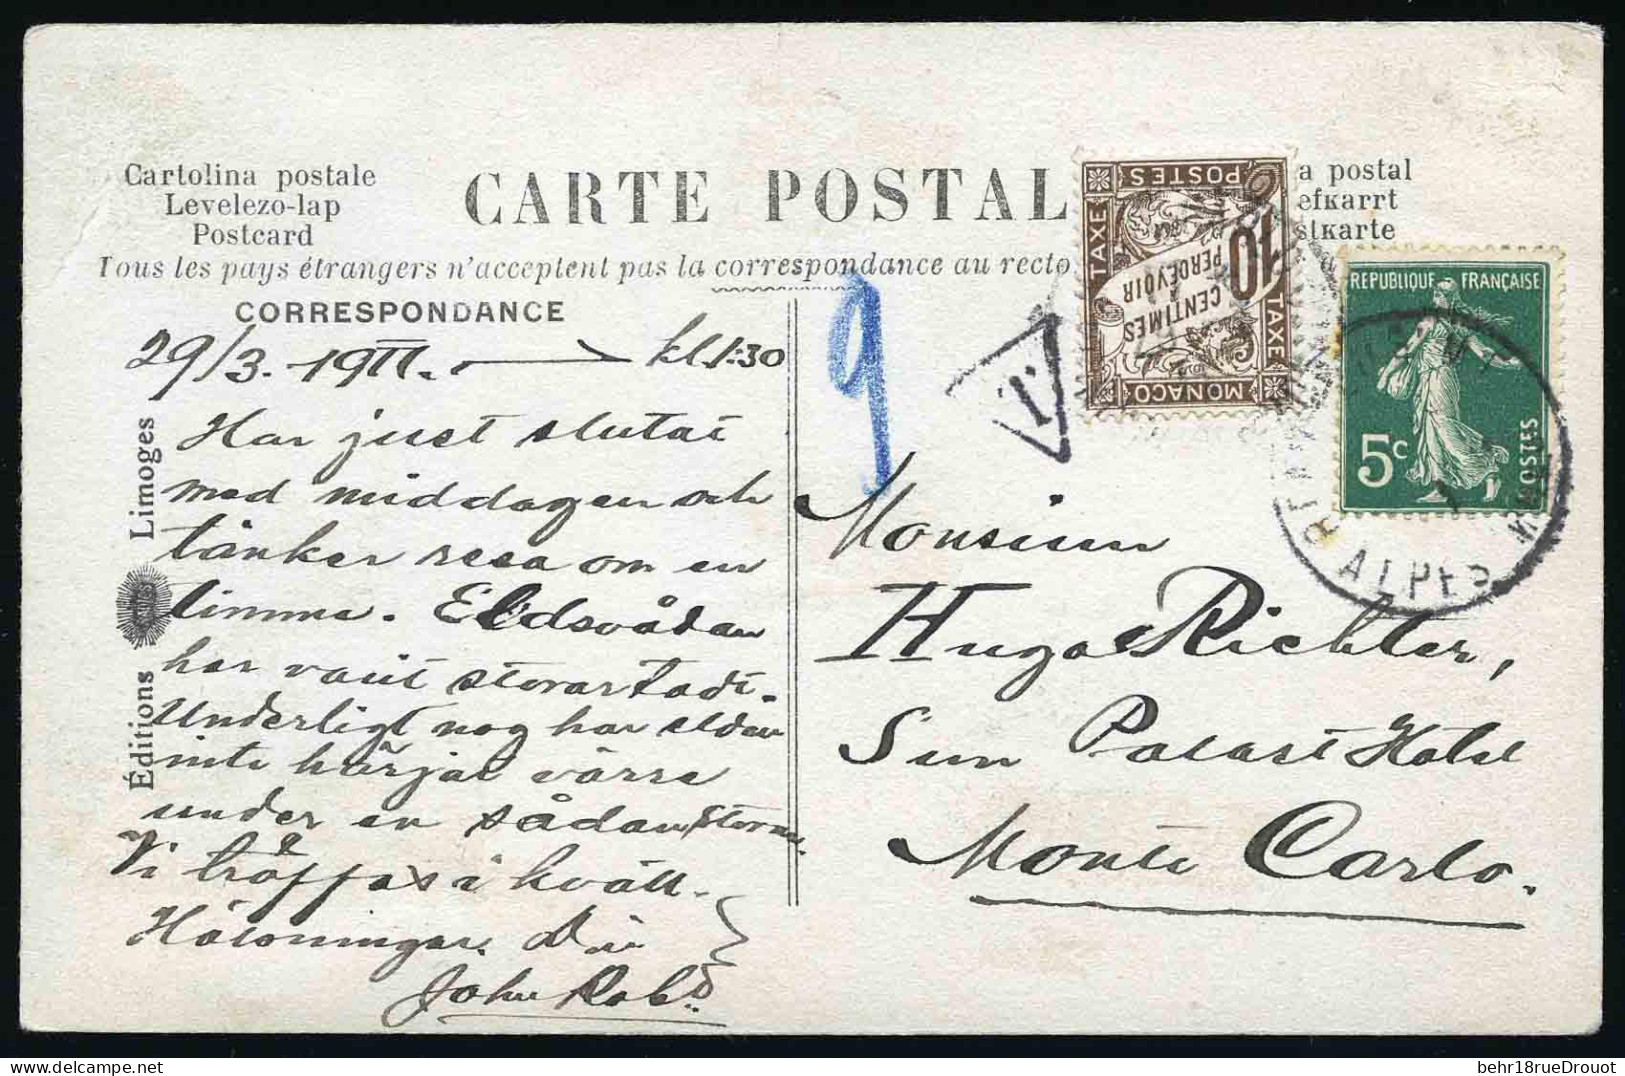 Cartolina postale
Levelezo-lap
Postcard
CARTE POSTAL
a postal
efkarrt
stkarte
Tous les pays étrangers n'acceptent pas la correspondance au recto
CORRESPONDANCE
29/3. 1911. kl. 1:30
Har just slutat
med middagen och
tänker resa om en
timma. Eldsvådan
har varit stor
Underligt nog har elden
inte härjat värre
under en sådan storm.
Vi träffas i kväll.
Hälsningar. Din
John Rob:
Éditions Limoges
9
T
POSTES
TAXE
10
CENTIMES
PERCEVOIR
TAXE
MONACO
REPUBLIQUE FRANÇAISE
5c
POSTES
ALPES
Monsieur
Hugo Richter,
Sun Palast Hotel
Monte Carlo.
behr18rueDrouot